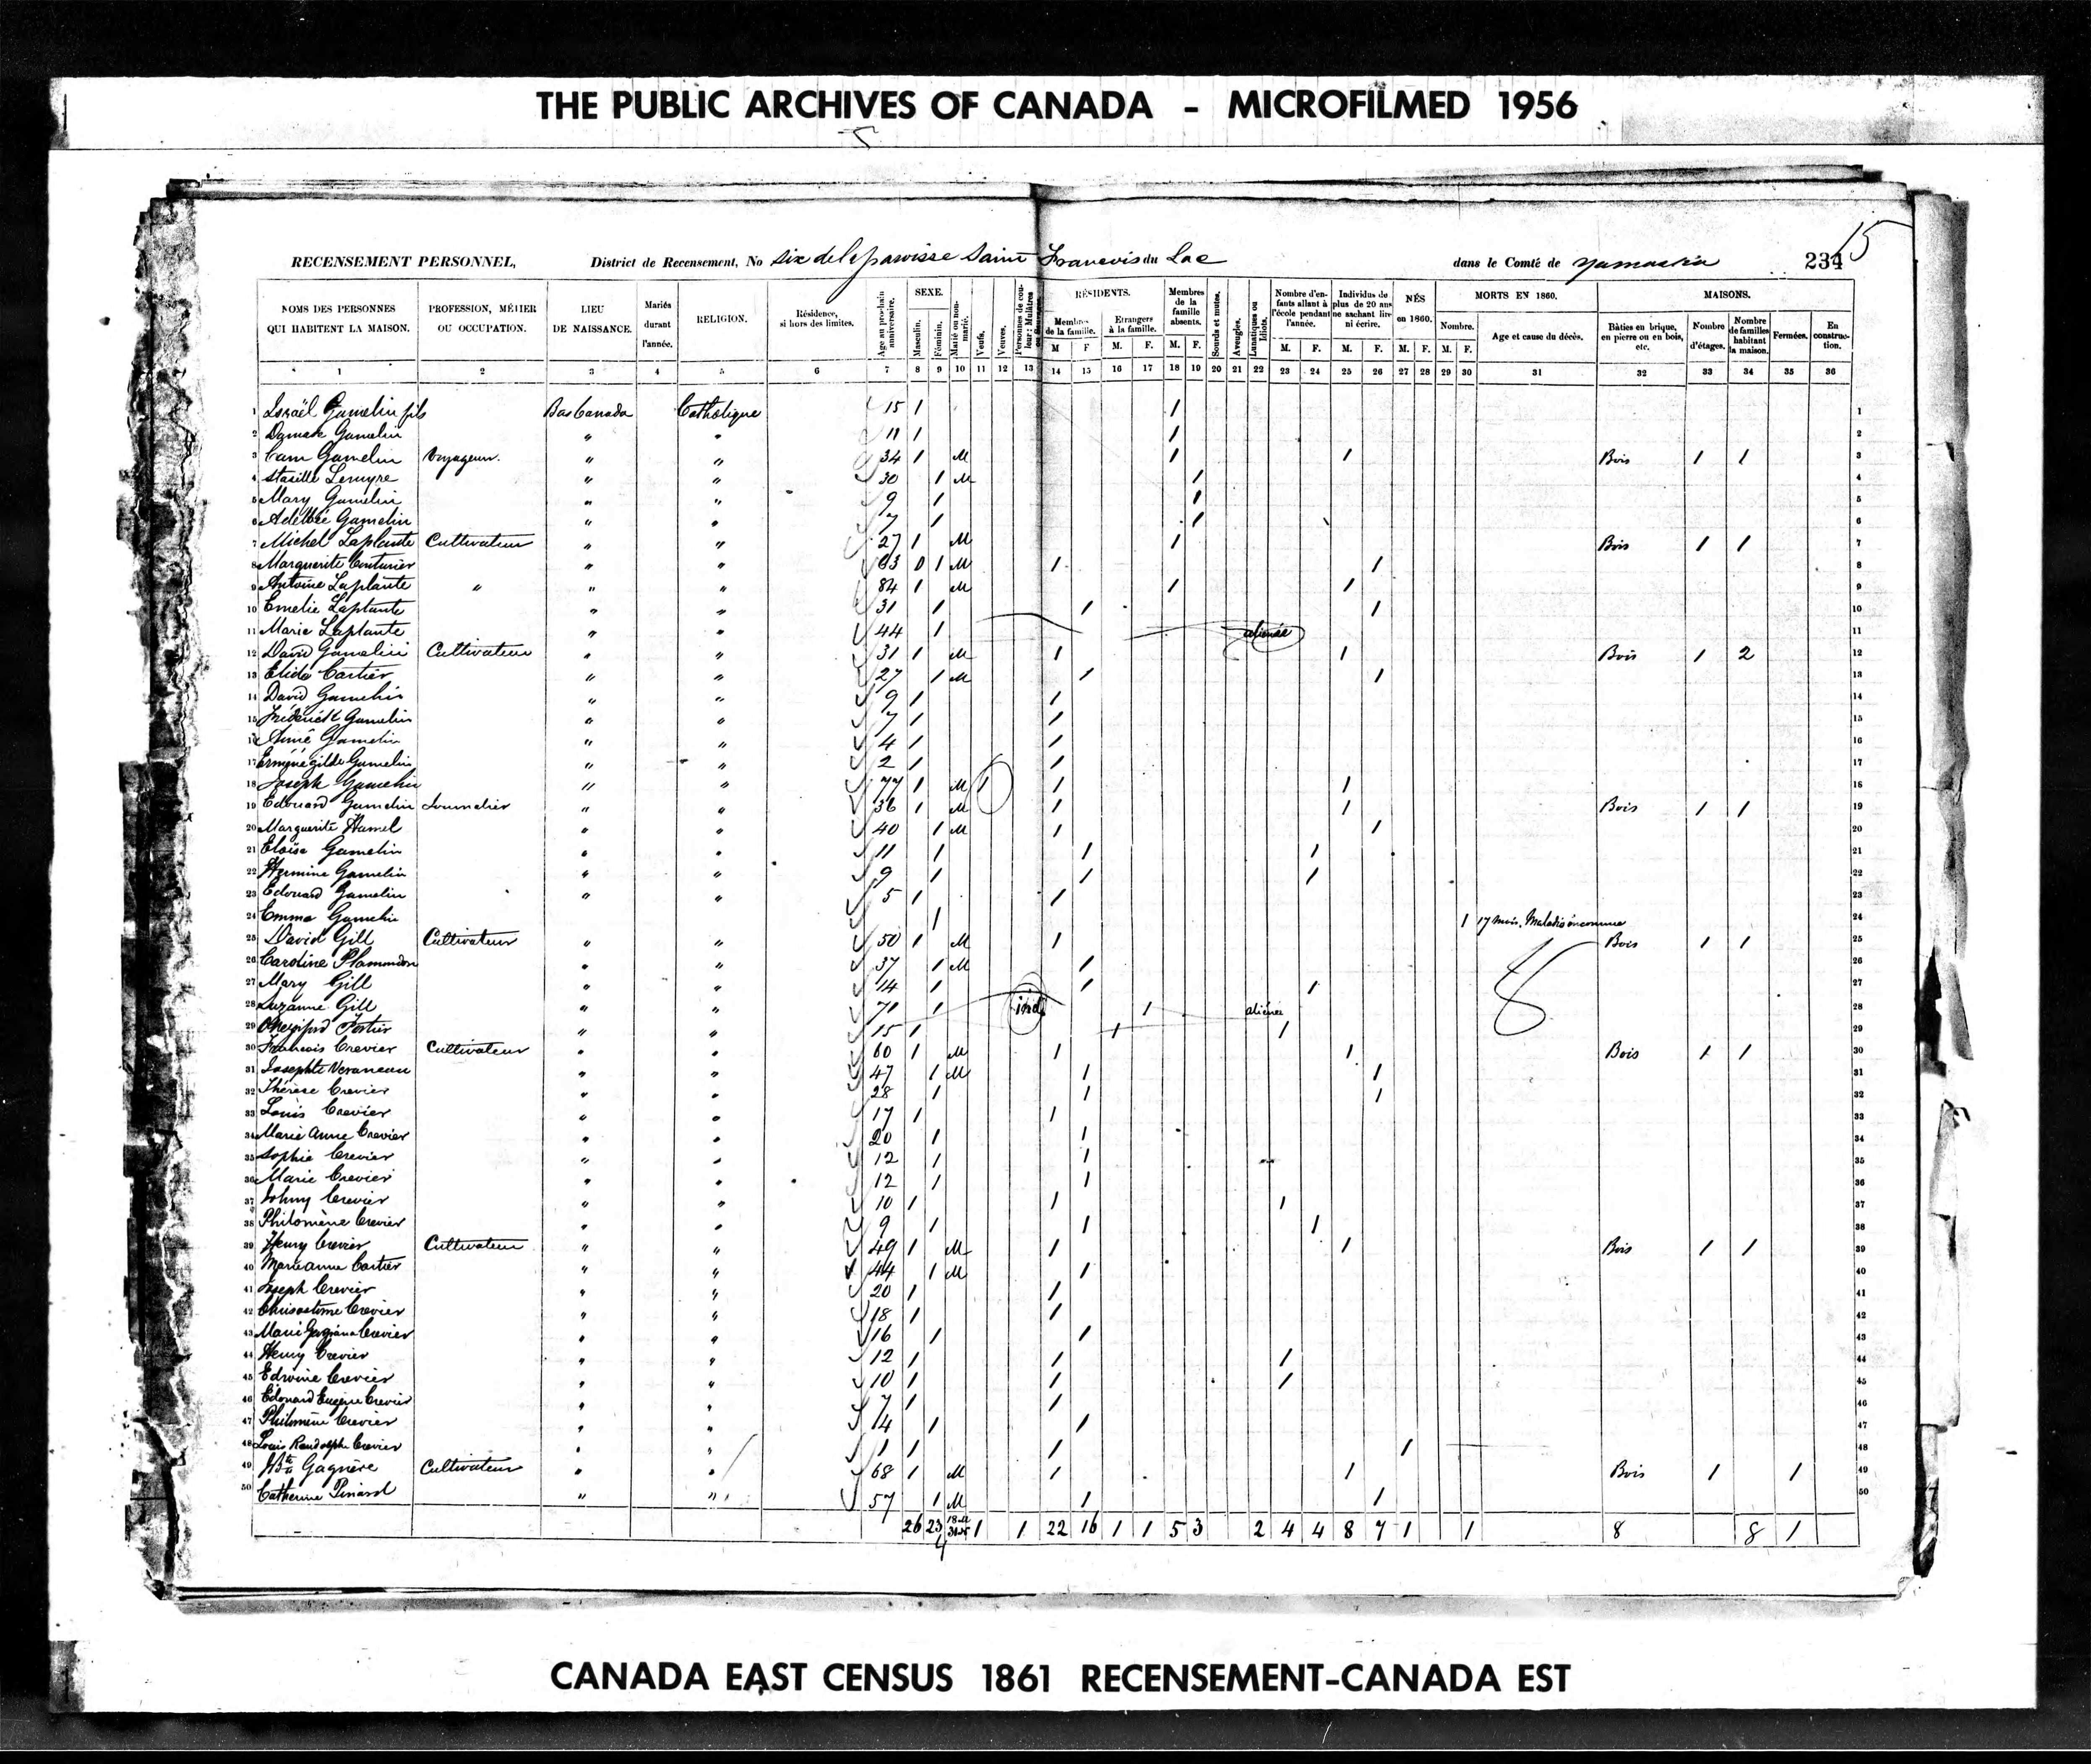 THE PUBLIC ARCHIVES OF CANADA - MICROFILMED 1956
15
RECENSEMENT PERSONNEL, District de Recensement, No six de la paroisse Saint Francois du Lac dans le Comté de Yamaska 234
NOMS DES PERSONNES QUI HABITENT LA MAISON. PROFESSION, MÉTIER OU OCCUPATION. LIEU DE NAISSANCE. Mariés durant l'année. RELIGION. Résidence, si hors des limites. Age au prochain anniversaire. SEXE. Masculin. Féminin. Marié ou non-marié. Veufs. Veuves. Personnes de couleur: Mulâtres RÉSIDENTS. Membres de la famille. M F Etrangers à la famille. M. F. Membres de la famille absents. M. F. Sourds et muets. Aveugles. Lunatiques ou Idiots. Nombre d'enfants allant à l'école pendant l'année. M. F. Individus de plus de 20 ans ne sachant lire ni écrire. M. F. NÉS en 1860. M. F. MORTS EN 1860. Nombre. M. F. Age et cause du décès. MAISONS. Bâties en brique, en pierre ou en bois, etc. Nombre d'étages. Nombre de familles habitant la maison. Fermées. En construction.
1 2 3 4 5 6 7 8 9 10 11 12 13 14 15 16 17 18 19 20 21 22 23 24 25 26 27 28 29 30 31 32 33 34 35 36
1 Israël Gamelin fils Bas Canada Catholique 15 1 1 1
2 Damase Gamelin " " 11 1 1 2
3 Gamelin Voyageur " " 34 1 M 1 1 Bois 1 1 3
4 " " 30 1 M 1 4
5 Mary Gamelin " " 9 1 1 5
6 Gamelin " " 7 1 1 6
7 Michel Laplante Cultivateur " " 27 1 M 1 Bois 1 1 7
8 Marguerite Couturier " " 63 0 1 M 1 1 8
9 Antoine Laplante " " " 84 1 M 1 1 9
10 Emelie Laplante " " 31 1 1 1 10
11 Marie Laplante " " 44 1 aliénée 11
12 David Gamelin Cultivateur " " 31 1 M 1 1 Bois 1 2 12
13 Cartier " " 27 1 M 1 1 13
14 David Gamelin " " 9 1 1 14
15 Gamelin " " 7 1 1 15
16 Aimé Gamelin " " 4 1 1 16
17 Gamelin " " 2 1 1 17
18 Joseph Gamelin " " 77 1 M 1 1 1 18
19 Edouard Gamelin " " 36 1 M 1 1 Bois 1 1 19
20 Marguerite Hamel " " 40 1 M 1 1 20
21 Eloïse Gamelin " " 11 1 1 1 21
22 Hermine Gamelin " " 9 1 1 1 22
23 Edouard Gamelin " " 5 1 1 23
24 Emma Gamelin 1 1 17 mois. Maladie inconnue 24
25 David Gill Cultivateur " " 50 1 M 1 Bois 1 1 25
26 Caroline Plamondon " " 37 1 M 1 26
27 Mary Gill " " 14 1 1 1 27
28 Suzanne Gill " " 71 1 ind 1 aliénée 28
29 " " 15 1 1 1 29
8
30 Francois Crevier Cultivateur " " 60 1 M 1 1 Bois 1 1 30
31 Josephte Veronneau " " 47 1 M 1 1 31
32 Thérèse Crevier " " 28 1 1 1 32
33 Louis Crevier " " 17 1 1 33
34 Marie Anne Crevier " " 20 1 1 34
35 Sophie Crevier " " 12 1 1 35
36 Marie Crevier " " 12 1 1 36
37 Johny Crevier " " 10 1 1 1 37
38 Philomène Crevier " " 9 1 1 1 38
39 Henry Crevier Cultivateur " " 49 1 M 1 1 Bois 1 1 39
40 Marieanne Cartier " " 44 1 M 1 40
41 Joseph Crevier " " 20 1 1 41
42 Chrisostome Crevier " " 18 1 1 42
43 Marie Crevier " " 16 1 1 43
44 Henry Crevier " " 12 1 1 1 44
45 Edwine Crevier " " 10 1 1 1 45
46 Edouard Eugène Crevier " " 7 1 1 46
47 Philomène Crevier " " 4 1 1 47
48 Louis Randolphe Crevier " " 1 1 1 1 48
49 Gagnère Cultivateur " " 68 1 M 1 1 Bois 1 1 49
50 Catherine Pinard " " 57 1 M 1 1 50
26 23 1 1 22 16 1 1 5 3 2 4 4 8 7 1 1 8 8 1
CANADA EAST CENSUS 1861 RECENSEMENT-CANADA EST